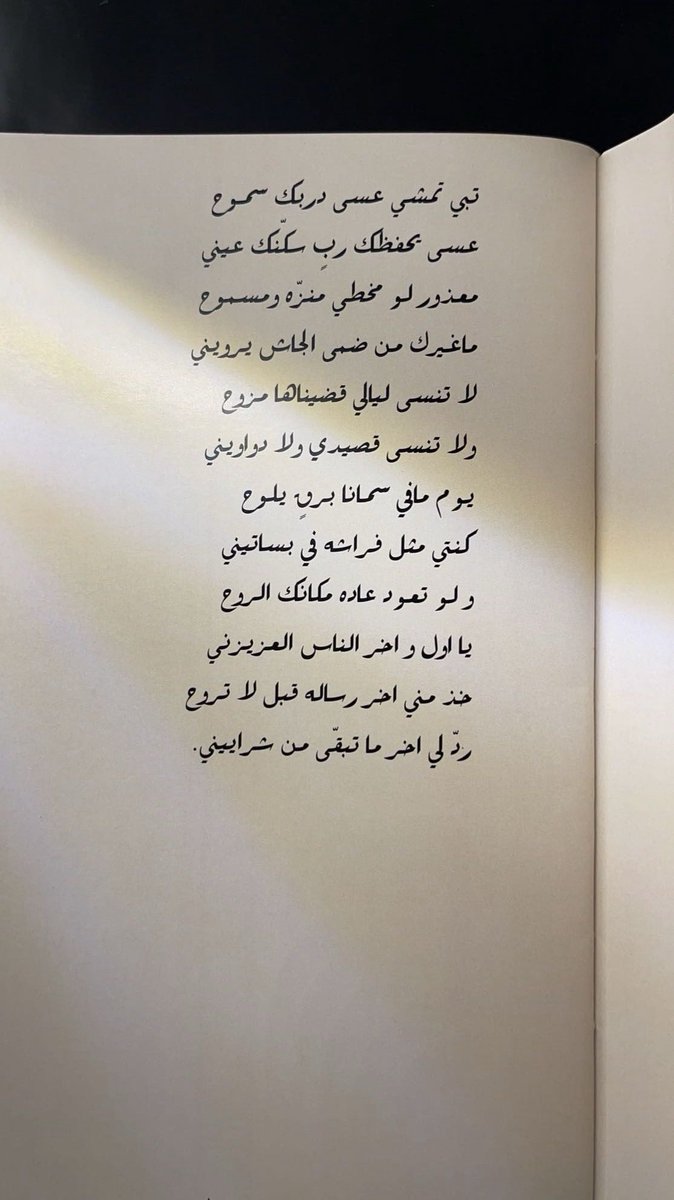 تبي تمشي عسى دربك سموح
عسى يحفظك ربٍ سكّنك عيني
معذور لو مخطي منزّه ومسموح
ماغيرك من ضمى الجاش يرويني
لا تنسى ليالي قضيناها مزوح
ولا تنسى قصيدي ولا دواويني
يوم مافي سمانا برقٍ يلوح
كنتي مثل فراشه في بساتيني
و لو تعود عاده مكانك الروح
يا اول و اخر الناس العزيزني
خذ مني اخر رساله قبل لا تروح
ردّ لي اخر ما تبقّى من شراييني.